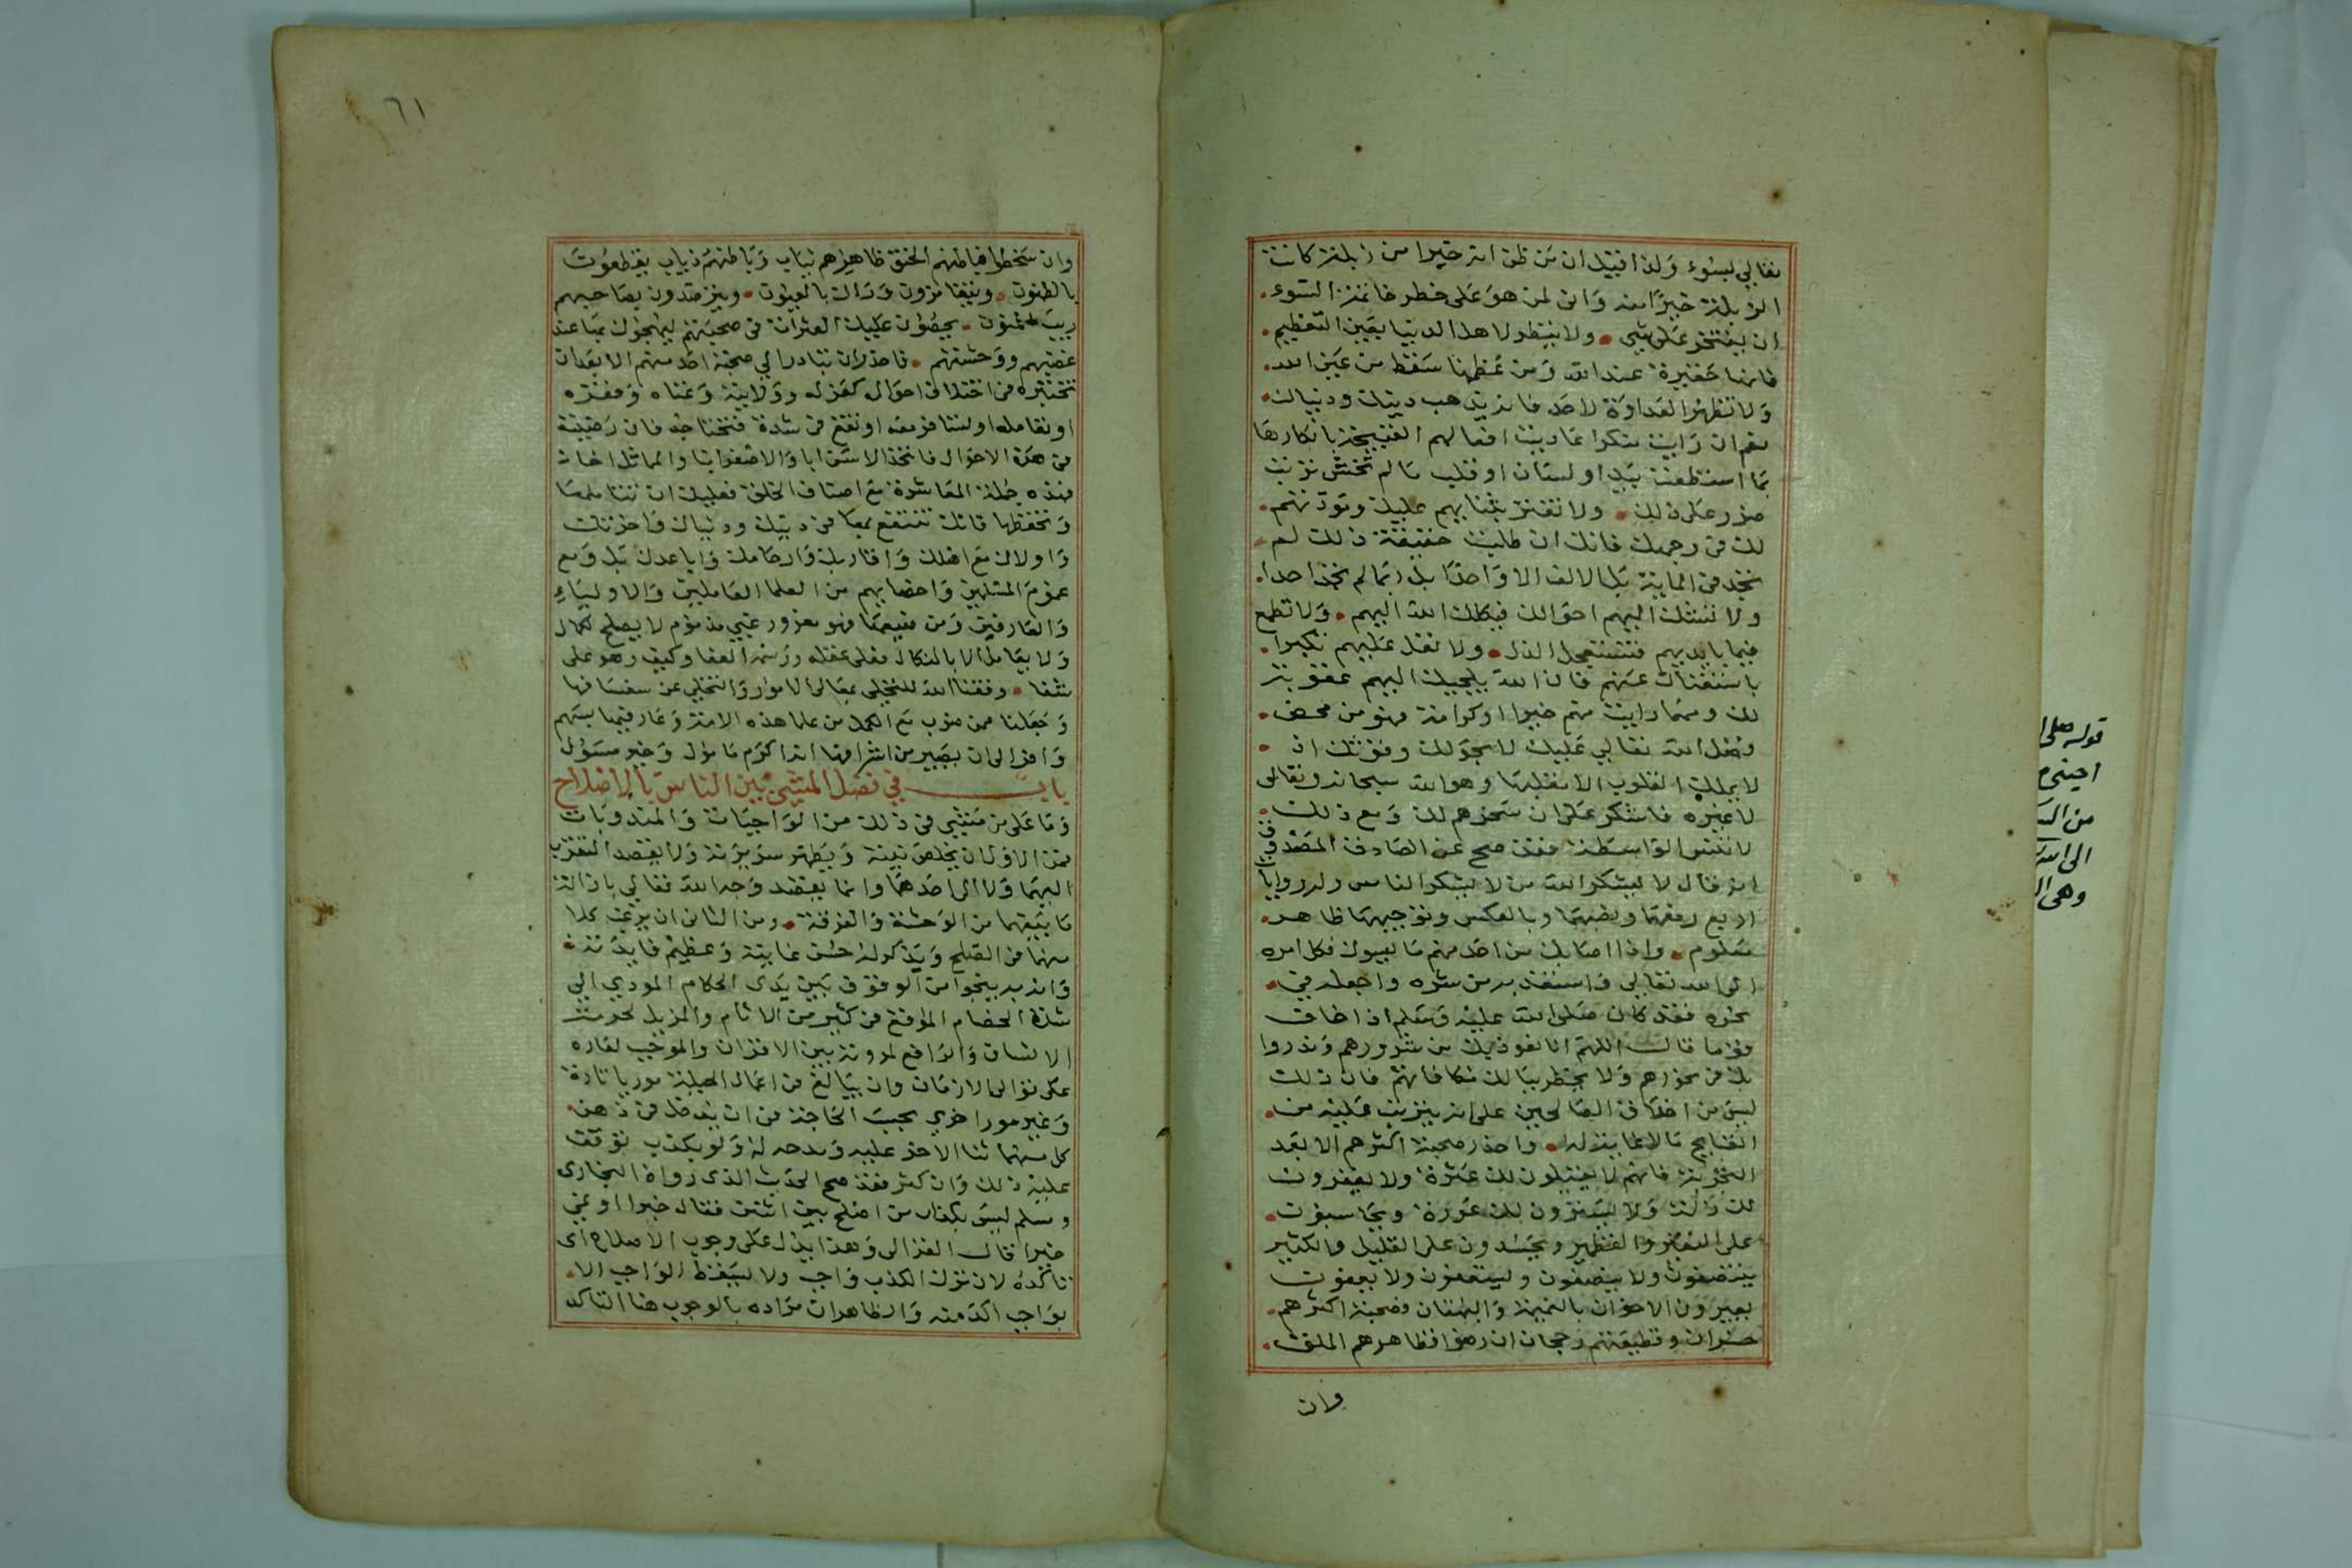 تعالى بسوء ولذا قيل ان من ظن انه خيرا من زبلة كانت
الزبلة خيرا منه وانى لمن هو على خطر خاتمة السوء
ان يفتخر على شيء ولا ينظر لاهل الدنيا بعين التعظيم
فانها حقيرة عند الله ومن عظمها سقط من عين الله
ولا تظهر العداوة لاحد فانه يذهب دينك ودنياك
نعم ان رايت منكرا عاديت افعالهم القبيحة بانكارها
بما استطعت بيد او لسان او قلب ما لم تخش ترتب
ضرر على ذلك ولا تغتر بثنايهم عليك وتوددهم
لك في وجهك فانك ان طلبت حقيقة ذلك لم
تجد في الماية بل الالف الا واحدا بل ربما لم تجد احدا
ولا تشك اليهم احوالك فيكلك الله اليهم ولا تطمع
فيما بايديهم فتستعجل الذل ولا تعل عليهم تكبرا
باستغنائك عنهم فان الله يلجيك اليهم عقوبة
لك ومهما رايت منهم خيرا او كرامة فهو من محض
فضل الله تعالى عليك لا بحولك وقوتك اذ
لا يملك القلوب الا مقلبها وهو الله سبحانه وتعالى
لا غيره فاشكر على ان سخرهم لك ومع ذلك
لا تنس الواسطة فقد صح عن الصادق المصدوق
انه قال لا يشكر الله من لا يشكر الناس وله روايات
اربع رفعهما ونصبهما وبالعكس وتوجيهها ظاهر
معلوم واذا اصابك من احد منهم ما يسوك فكل امره
الى الله تعالى واستعذ به من شره واجعله في
نحره فقد كان صلى الله عليه وسلم اذا خاف
قوما قال اللهم انا نعوذ بك من شرورهم وندروا
بك في نحورهم ولا يخطر ببالك مكافاتهم فان ذلك
ليس من اخلاق الصالحين على انه يترتب عليه من
القبايح ما لا غاية له واحذر صحبة اكثرهم الا بعد
التجربة فانهم لا يقيلون لك عثرة ولا يغفرون
لك زلة ولا يسترون لك عورة ويحاسبون
على النقير والقطمير ويحسدون على القليل والكثير
ينتصفون ولا ينصفون ولا يعفون
يعيرون الاخوان بالنميمة والبهتان وصحبة اكثرهم
خسران وقطيعتهم رجحان ان رضوا فظاهرهم الملق
وان
٦١
وان سخطوا فباطنهم الحنق ظاهرهم ثياب وباطنهم ذياب يقطعون
بالظنون ويتغامزون وراك بالعيون ويتربصدون بصاحبهم
ريب المنون يحصون عليك العثرات في صحبتهم ليجبهوك بها عند
غضبهم ووحشتهم فاحذر ان تبادر الى صحبة احد منهم الا بعد ان
تختبره في اختلاف احواله كعزله وولايته وغناه وفقره
او تعامله او تسافر معه او تقع في شدة فتحتاجه فان رضيته
في هذه الاحوال فاتخذ الاسن ابا والاصغر ابنا والمماثل اخا
فهذه جملة المعاشرة مع اصناف الخلق فعليك ان تتاملها
وتحفظها فانك تنتفع بها في دينك ودنياك واخرتك
واولادك مع اهلك واقاربك وارحامك واباعدك بل ومع
عموم المسلمين واخصائهم من العلما العاملين والاوليا
والعارفين ومن ضيعها فهو مغرور غبي مذموم لا يصلح لكمال
ولا يعامل الا بالنكال فعلى عقله ودينه العفا وكيف وهو على
شفا وفقنا الله للتحلي بمعالي الامور والتخلي عن سفسافها
وجعلنا ممن ضرب مع الكمل من علما هذه الامة وعارفيها بسهم
وافر الى ان يصير من اشرافها انه اكرم مامول وخير مسؤل
باب في فضل المشي بين الناس بالاصلاح
وما على من مشى في ذلك من الواجبات والمندوبات
فمن الاول ان يخلص نيته ويطهر سريرته ولا يقصد التقرب
اليهما ولا الى احدهما وانما يقصد وجه الله تعالى بازالة
ما بينهما من الوحشة والفرقة ومن الثاني ان يرغب كلا
منهما في الصلح ويذكر له حسن غايته وعظيم فايدته
وانه به ينجو من الوقوف بين يدي الحكام المودي الى
شدة الخصام الموقع في كثير من الاثام والمزيل لحرمة
الانسان والرافع لمروته بين الاقران والموجب لعاره
على توالي الازمان وان يبالغ في اعمال الحيلة موريا تارة
وغير مور اخرى بحسب الحاجة في ان يدخل في ذهن
كل منهما ثنا الاخر عليه ومدحه له ولو بكذب توقف
عليه ذلك وان كثر فقد صح الحديث الذي رواه البخاري
ومسلم ليس بكذاب من اصلح بين اثنين فقال خيرا او نمى
خيرا قال الغزالي وهذا يدل على وجوب الاصلاح اي
تاكده لان ترك الكذب واجب ولا يسقط الواجب الا
بواجب اكد منه والظاهر ان مراده بالوجوب هنا التاكد
قوله صلى
الى الله